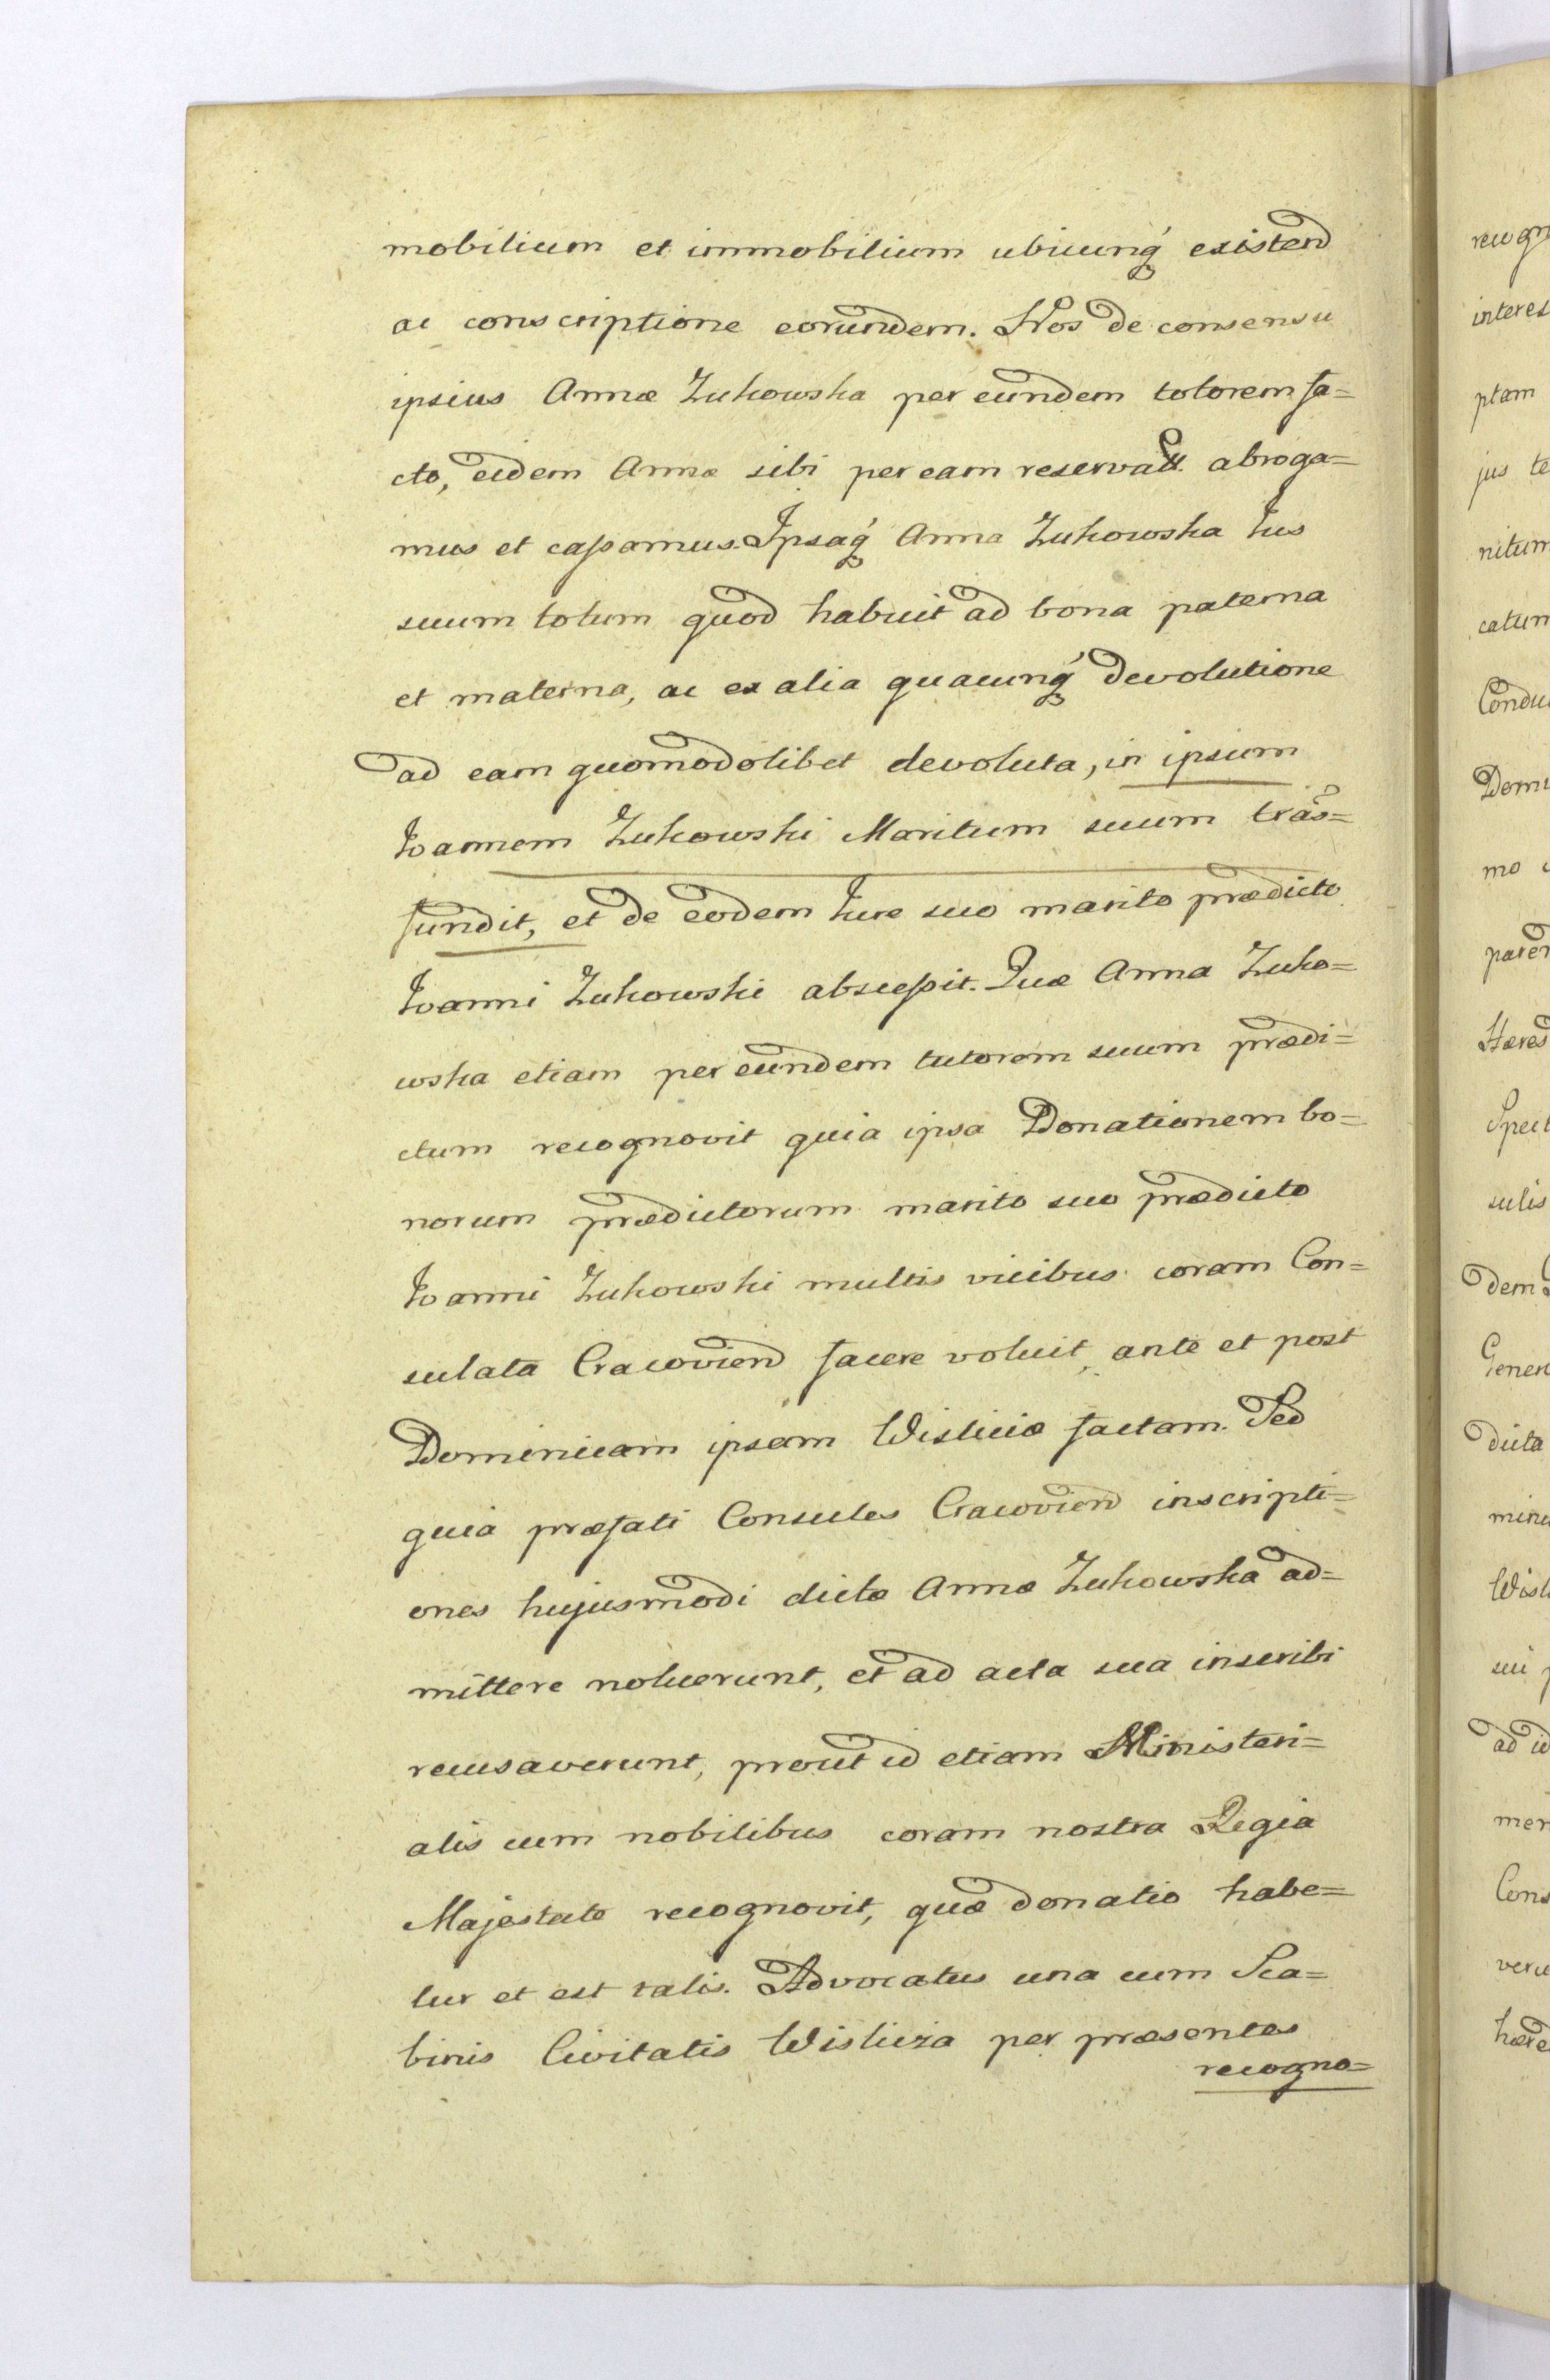 mobilium et immobilium ubicunq́ existend
ac conscriptione eorundem. Nos de consensu
ipsius Annæ Zukowska per eundem totorem fa=
cto, eidem Annæ sibi per eam reservatt. abroga=
mus et cassamus. Ipsaq́ Anna Zukowska Jus
suum totum quod habuit ad bona paterna
et materna, ac ex alia quacunq́ devolutione
ad eam quomodolibet devoluta, in ipsum
Joannem Zukowski Maritum suum trãs=
fundit, et de eodem Jure suo marito prædicto
Joanni Zukowski abscessit. Quæ Anna Zuko=
wska etiam per eundem tutorem suum prædi=
ctum recognovit quia ipsa Donationem bo=
norum prædictorum marito suo prædicto
Joanni Zukowski multis vicibus coram Con=
sulatu Cracovien facere voluit, ante et post
Dominicam ipsam Wisliciæ factam. Sed
quia præfati Consules Cracovien inscripti=
ones hujusmodi dictæ Annæ Zukowska ad=
mittere noluerunt, et ad acta sua inscribi
recusaverunt, prout id etiam Ministeri=
alis cum nobilibus coram nostra Regia
Majestate recognovit, quæ donatio habe=
tur et est talis. Advocatus una cum Sca=
binis Civitatis Wislicza per præsentes
recogno=
recogn
interes
ptam
jus te
nitum
catum
Condu
Domi
mo
paren
Hæred
Spect
sulis
dem
Gener
dicta
minu
Wisl
sui
ad id
men
Cons
veru
hære